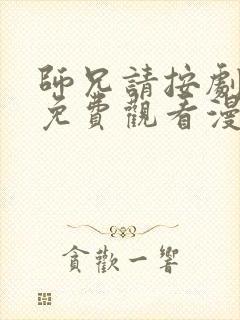 師兄請按劇
免費觀看漫
貪歡一響